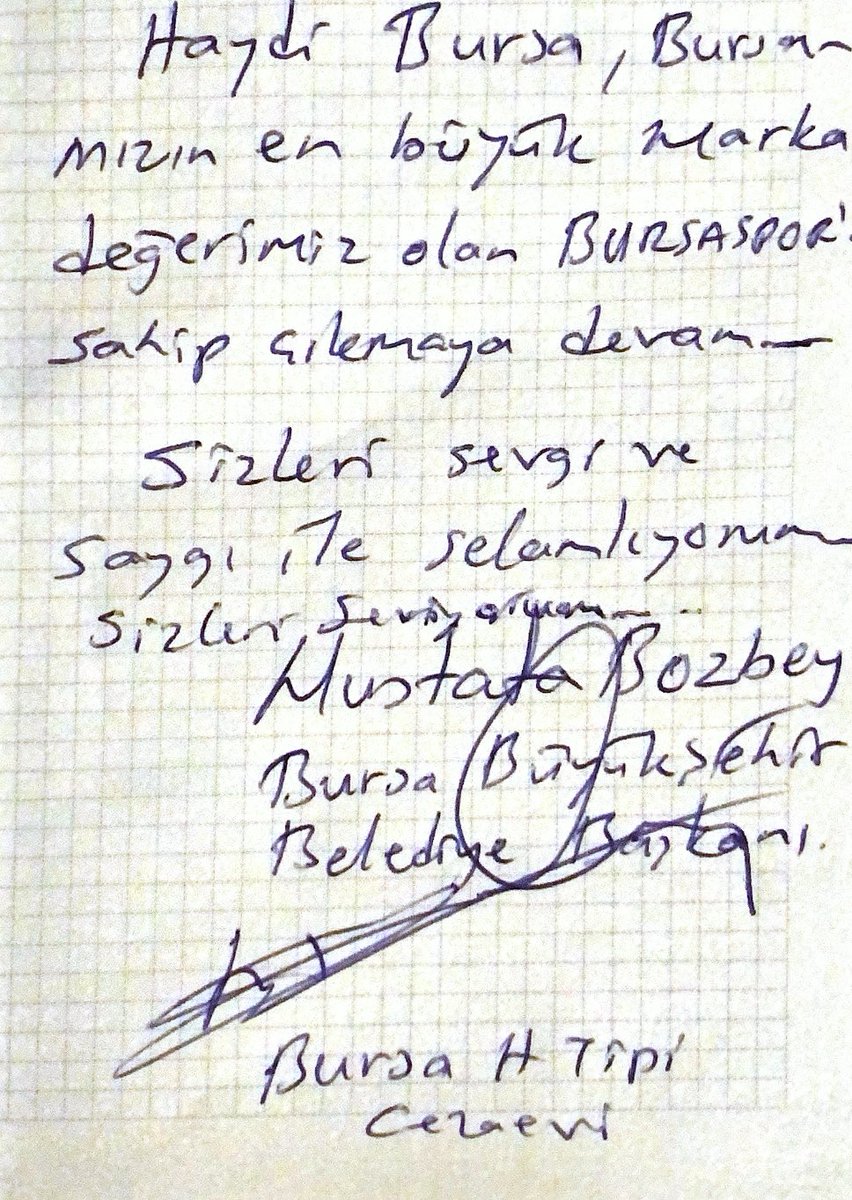 Haydi Bursa, Bursa-
mızın en büyük Marka
değerimiz olan BURSASPOR'
sahip çıkmaya devam
Sizleri sevgi ve
saygı ile selamlıyorum
Sizleri Seviyorum
Mustafa Bozbey
Bursa Büyükşehir
Belediye Başkanı.
Bursa H Tipi
Cezaevi